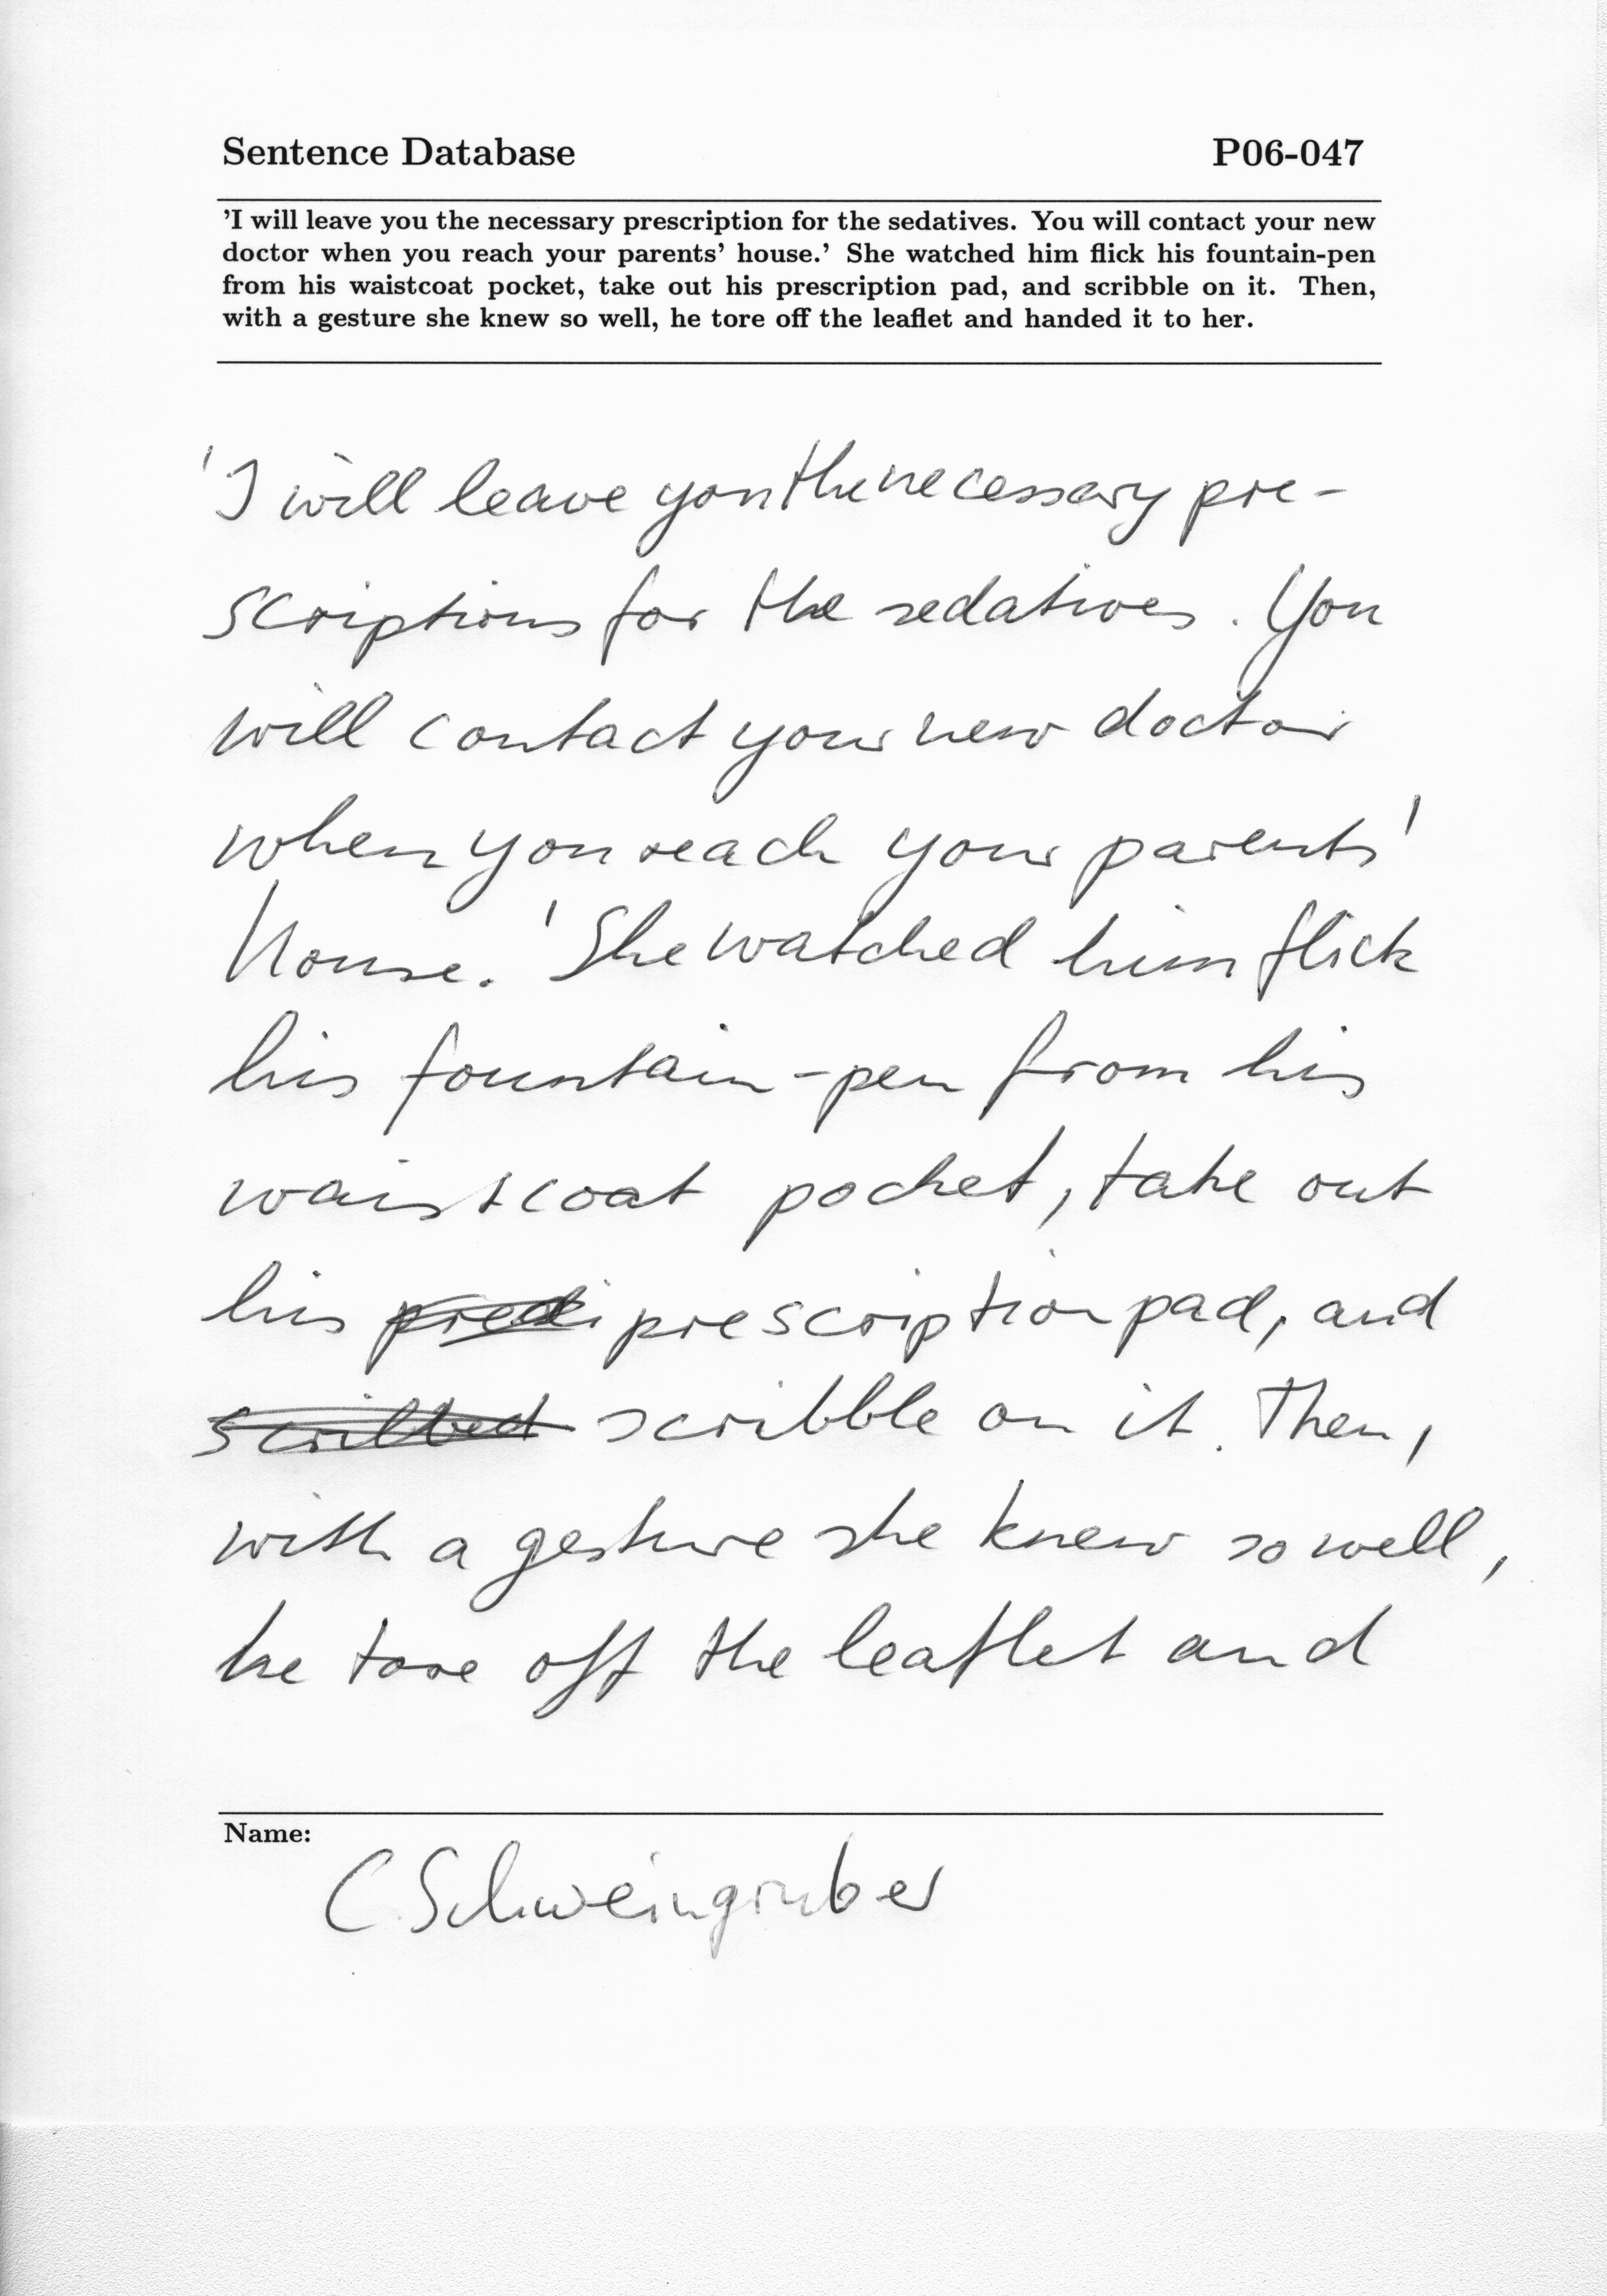 Sentence Database P06-047
'I will leave you the necessary prescription for the sedatives. You will contact your new
doctor when you reach your parents' house.' She watched him flick his fountain-pen
from his waistcoat pocket, take out his prescription pad, and scribble on it. Then,
with a gesture she knew so well, he tore off the leaflet and handed it to her.
'I will leave you the necessary pre-
scriptions for the sedatives. You
will contact your new doctor
when you reach your parents'
house.' She watched him flick
his fountain-pen from his
waistcoat pocket, take out
his prescription pad, and
scribble on it. Then,
with a gesture she knew so well,
he tore off the leaflet and
Name:
C. Schweingruber